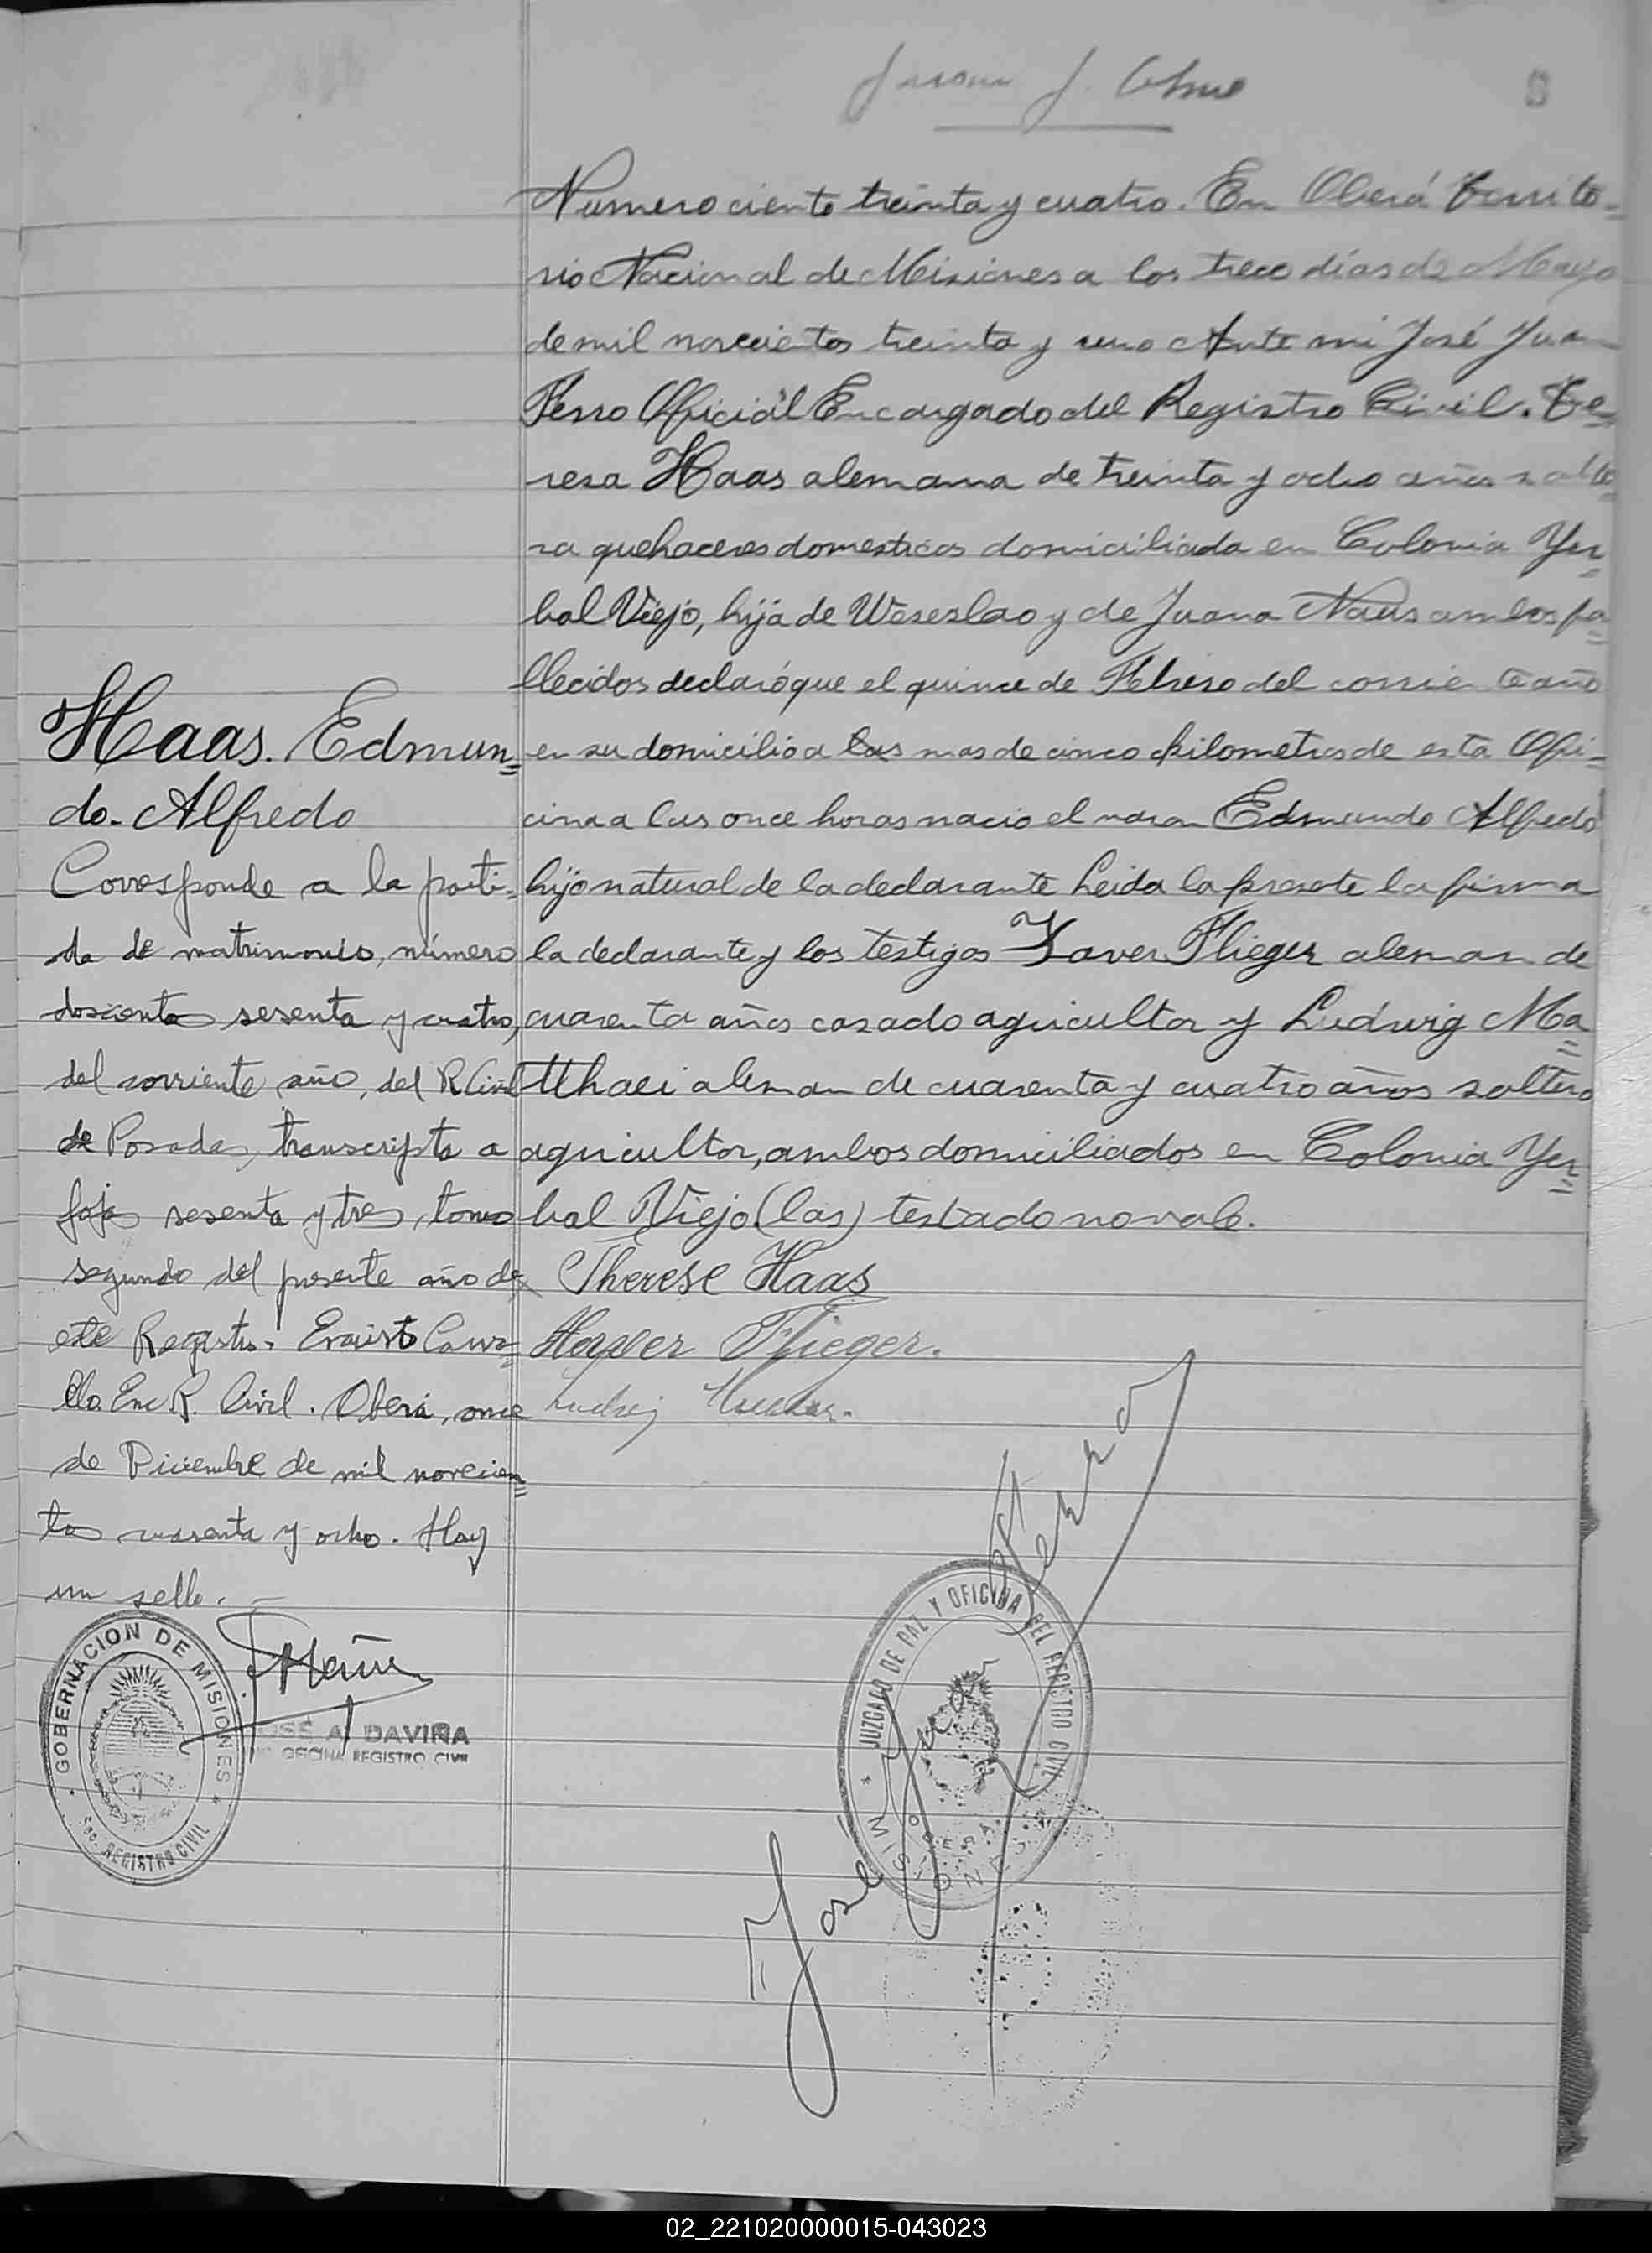 Numero ciento treinta y cuatro. En Oberá Territo=
rio Nacional de Misiones a los trece días de Mayo
de mil novecientos treinta y uno Ante mi José Juan
Ferro Oficial Encargado del Registro Civil. Te=
resa Haas alemana de treinta y ocho años solte=
ra quehaceres domesticos domiciliada en Colonia Yer=
bal Viejo, hija de Weseslao y de Juana Naus ambos fa=
llecidos declaró que el quince de Febrero del corriente año
en su domicilio a las mas de cinco kilometros de esta Ofi=
cina a las once horas nacio el varon Edmundo Alfredo
hijo natural de la declarante Leida la presente la firma
la declarante y los testigos Xaver Flieger aleman de
cuarenta años casado agricultor y Ludwig Ma=
tthaei aleman de cuarenta y cuatro años soltero
agricultor, ambos domiciliados en Colonia Yer=
bal Viejo (las) testado no vale.
Therese Haas
Xaver Flieger.
José Juan Ferro
JUZGADO DE PAZ Y OFICINA DEL REGISTRO CIVIL
OBERA
* MISIONES *
Haas. Edmun=
do. Alfredo
Corresponde a la parti=
da de matrimonio, número
doscientos sesenta y cuatro,
del corriente año, del R. Civil
de Posadas, transcripta a
fojas sesenta y tres, tomo
segundo del presente año de
este Registro. Evaristo
Enc R. Civil. Oberá, once
de Diciembre de mil novecien=
tos cuarenta y ocho. Hay
un sello.
GOBERNACION DE MISIONES
Sec. REGISTRO CIVIL
JOSÉ A. DAVIÑA
OFICINA REGISTRO CIVIL
02_221020000015-043023